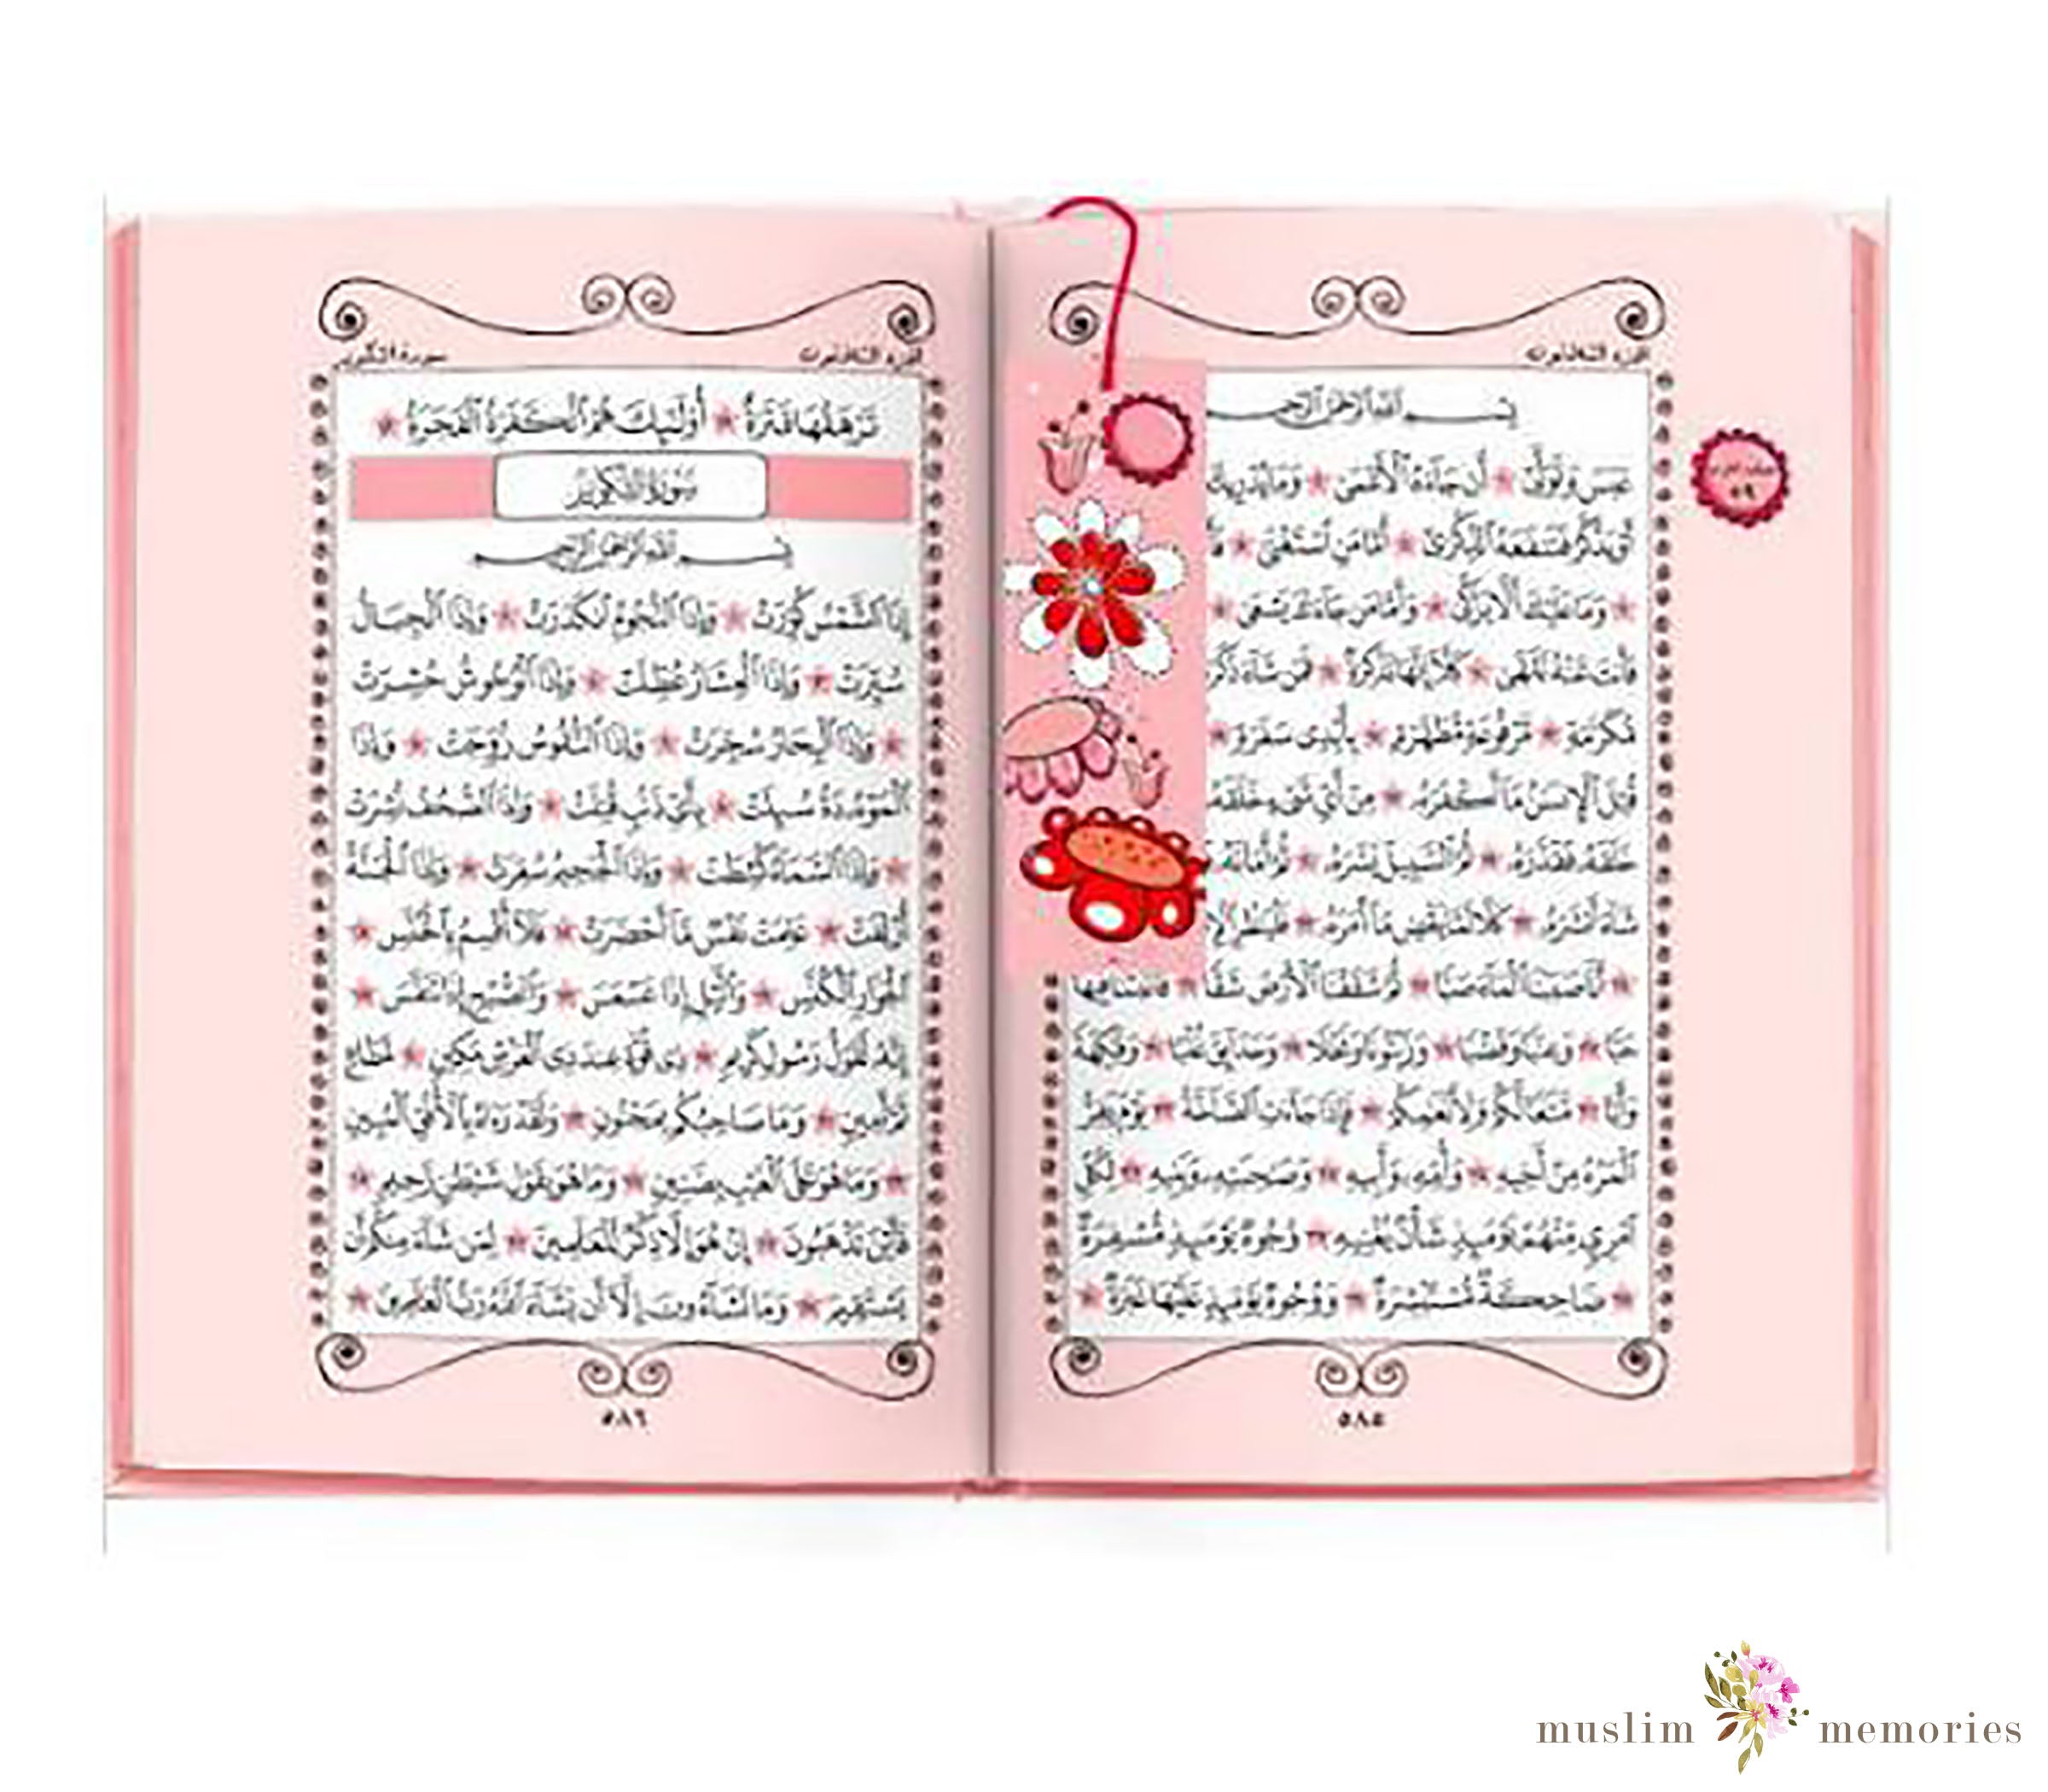 الجزء الثلاثون
بِسْمِ اللَّهِ الرَّحْمَٰنِ الرَّحِيمِ
عَبَسَ وَتَوَلَّىٰ ★ أَن جَاءَهُ الْأَعْمَىٰ ★ وَمَا يُدْرِيكَ
أَوْ يَذَّكَّرُ فَتَنفَعَهُ الذِّكْرَىٰ ★ أَمَّا مَنِ اسْتَغْنَىٰ ★
★ وَمَا عَلَيْكَ أَلَّا يَزَّكَّىٰ ★ وَأَمَّا مَن جَاءَكَ يَسْعَىٰ ★
فَأَنتَ عَنْهُ تَلَهَّىٰ ★ كَلَّا إِنَّهَا تَذْكِرَةٌ ★ فَمَن شَاءَ ذَكَرَ
مُّكَرَّمَةٍ ★ مَّرْفُوعَةٍ مُّطَهَّرَةٍ ★ بِأَيْدِي سَفَرَةٍ ★
قُتِلَ الْإِنسَانُ مَا أَكْفَرَهُ ★ مِنْ أَيِّ شَيْءٍ خَلَقَهُ
خَلَقَهُ فَقَدَّرَهُ ★ ثُمَّ السَّبِيلَ يَسَّرَهُ ★ ثُمَّ أَمَاتَهُ
شَاءَ أَنشَرَهُ ★ كَلَّا لَمَّا يَقْضِ مَا أَمَرَهُ ★ فَلْيَنظُرِ
★ أَنَّا صَبَبْنَا الْمَاءَ صَبًّا ★ ثُمَّ شَقَقْنَا الْأَرْضَ شَقًّا ★ فَأَنبَتْنَا فِيهَا
حَبًّا ★ وَعِنَبًا وَقَضْبًا ★ وَزَيْتُونًا وَنَخْلًا ★ وَحَدَائِقَ غُلْبًا ★ وَفَاكِهَةً
وَأَبًّا ★ مَّتَاعًا لَّكُمْ وَلِأَنْعَامِكُمْ ★ فَإِذَا جَاءَتِ الصَّاخَّةُ ★ يَوْمَ يَفِرُّ
الْمَرْءُ مِنْ أَخِيهِ ★ وَأُمِّهِ وَأَبِيهِ ★ وَصَاحِبَتِهِ وَبَنِيهِ ★ لِكُلِّ
امْرِئٍ مِّنْهُمْ يَوْمَئِذٍ شَأْنٌ يُغْنِيهِ ★ وُجُوهٌ يَوْمَئِذٍ مُّسْفِرَةٌ
★ ضَاحِكَةٌ مُّسْتَبْشِرَةٌ ★ وَوُجُوهٌ يَوْمَئِذٍ عَلَيْهَا غَبَرَةٌ ★
٥٨٥
٥٩
الجزء الثلاثون
سورة التكوير
تَرْهَقُهَا قَتَرَةٌ ★ أُولَٰئِكَ هُمُ الْكَفَرَةُ الْفَجَرَةُ ★
سُورَةُ التَّكْوِيرِ
بِسْمِ اللَّهِ الرَّحْمَٰنِ الرَّحِيمِ
إِذَا الشَّمْسُ كُوِّرَتْ ★ وَإِذَا النُّجُومُ انكَدَرَتْ ★ وَإِذَا الْجِبَالُ
سُيِّرَتْ ★ وَإِذَا الْعِشَارُ عُطِّلَتْ ★ وَإِذَا الْوُحُوشُ حُشِرَتْ
★ وَإِذَا الْبِحَارُ سُجِّرَتْ ★ وَإِذَا النُّفُوسُ زُوِّجَتْ ★ وَإِذَا
الْمَوْءُودَةُ سُئِلَتْ ★ بِأَيِّ ذَنبٍ قُتِلَتْ ★ وَإِذَا الصُّحُفُ نُشِرَتْ
★ وَإِذَا السَّمَاءُ كُشِطَتْ ★ وَإِذَا الْجَحِيمُ سُعِّرَتْ ★ وَإِذَا الْجَنَّةُ
أُزْلِفَتْ ★ عَلِمَتْ نَفْسٌ مَّا أَحْضَرَتْ ★ فَلَا أُقْسِمُ بِالْخُنَّسِ ★
الْجَوَارِ الْكُنَّسِ ★ وَاللَّيْلِ إِذَا عَسْعَسَ ★ وَالصُّبْحِ إِذَا تَنَفَّسَ ★
إِنَّهُ لَقَوْلُ رَسُولٍ كَرِيمٍ ★ ذِي قُوَّةٍ عِندَ ذِي الْعَرْشِ مَكِينٍ ★ مُّطَاعٍ
ثَمَّ أَمِينٍ ★ وَمَا صَاحِبُكُم بِمَجْنُونٍ ★ وَلَقَدْ رَآهُ بِالْأُفُقِ الْمُبِينِ
★ وَمَا هُوَ عَلَى الْغَيْبِ بِضَنِينٍ ★ وَمَا هُوَ بِقَوْلِ شَيْطَانٍ رَّجِيمٍ ★
فَأَيْنَ تَذْهَبُونَ ★ إِنْ هُوَ إِلَّا ذِكْرٌ لِّلْعَالَمِينَ ★ لِمَن شَاءَ مِنكُمْ أَن
يَسْتَقِيمَ ★ وَمَا تَشَاءُونَ إِلَّا أَن يَشَاءَ اللَّهُ رَبُّ الْعَالَمِينَ ★
٥٨٦
muslim memories